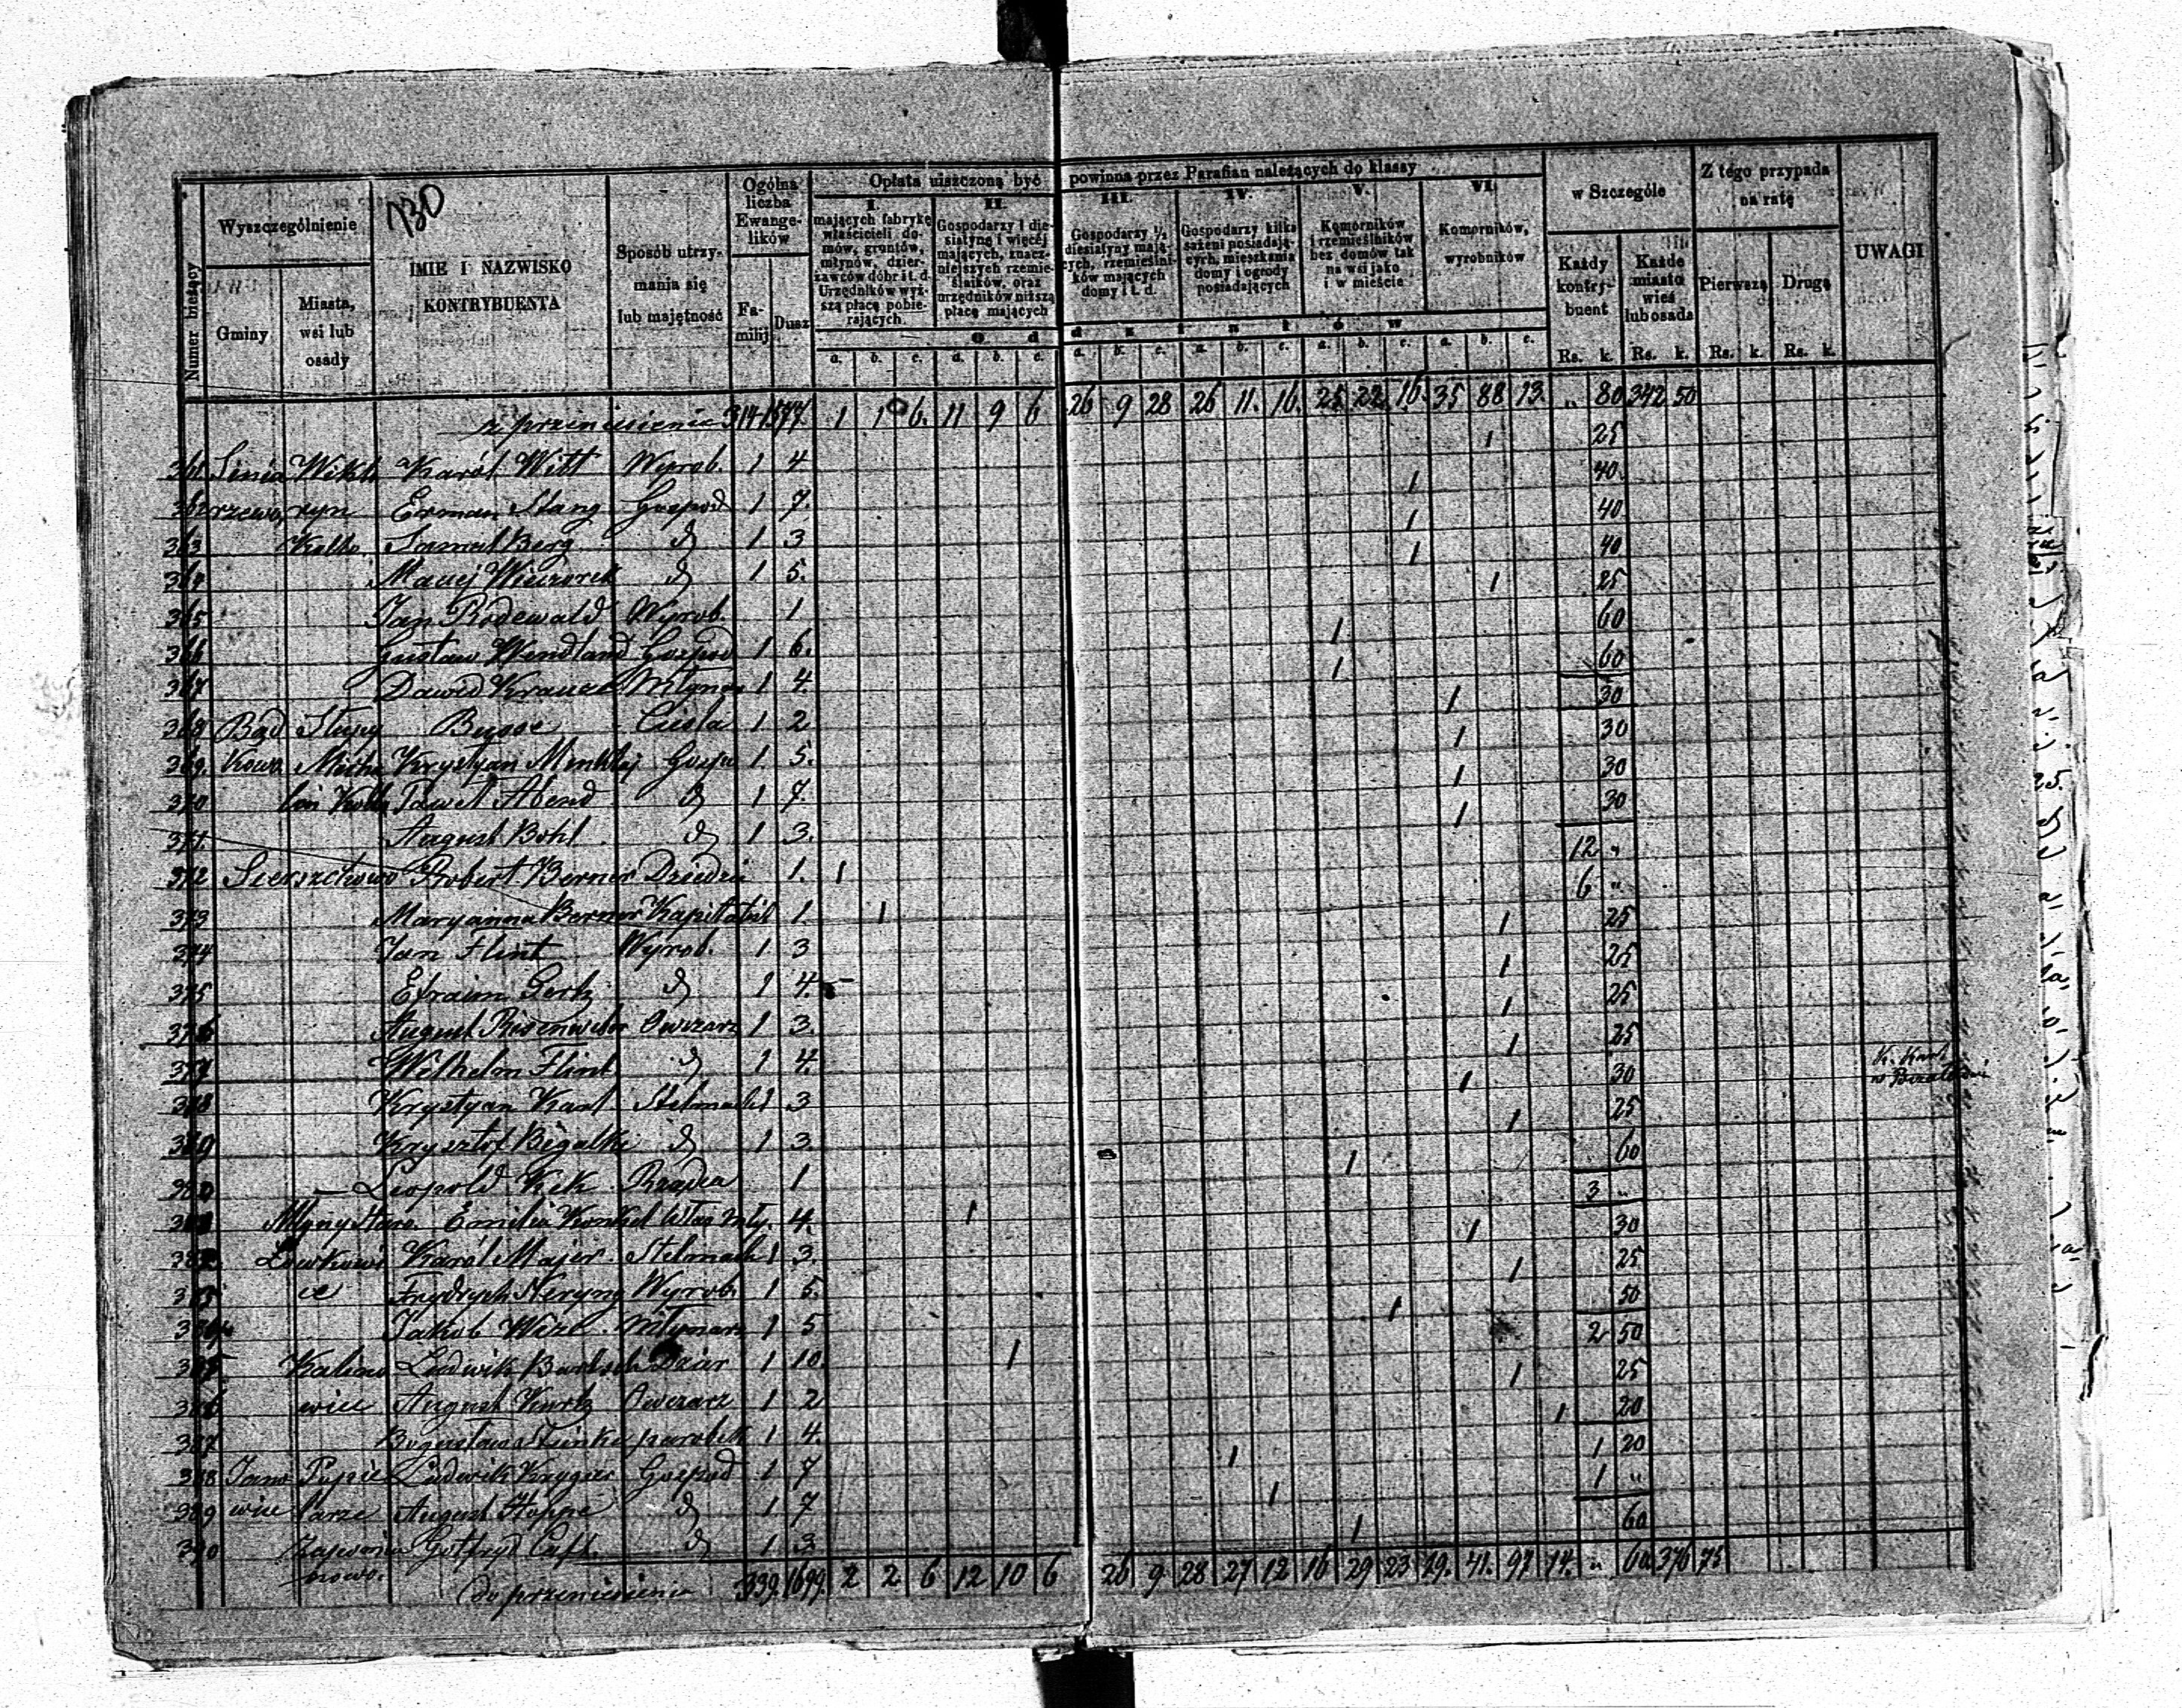 130
Numer bieżący
Wyszczególnienie
Gminy
Miasta, wsi lub osady
IMIE I NAZWISKO KONTRYBUENTA
Sposób utrzymania się lub majętność
Ogólna liczba Ewangelików
Familij
Dusz
Opłata uiszczoną być powinna przez Parafian należących do klassy
I. mających fabrykę właścicieli domów, gruntów, młynów, dzierżawców dóbr i t. d. Urzędników wyższą płacę pobierających.
II. Gospodarzy i diesiatynę i więcéj mających, znaczniejszych rzemieślników, oraz urzędników niższą płacę mających
III. Gospodarzy ½ diesiatyny mających, rzemieślników mających domy i t. d.
IV. Gospodarzy kilka sażeni posiadających, mieszkania domy i ogrody posiadających
V. Komorników i rzemieślników bez domów tak na wsi jako i w mieście
VI. Komorników, wyrobników
O d d z i a ł ó w
a. b. c. a. b. c. a. b. c. a. b. c. a. b. c. a. b. c.
w Szczególe
Każdy kontrybuent
Każde miasto wieś lub osada
Z tego przypada na ratę
Pierwszą
Drugą
UWAGI
Rs. k. Rs. k. Rs. k. Rs. k.
z przeniesienia 314 1577 1 1 6. 11 9 6 26 9 28 26 11. 16. 25 22 16. 35 88 13. „ 80 342 50
361 Karól Witt Wyrob. 1 4 1 25
362 rzewo, ryn Erman Stang Gospod 1 7. 1 40
363 Kolło Samuel Berg d 1 3 1 40
364 Maciej Wieczorek d 1 5. 1 40
365 Jan Rodewald Wyrob. 1 1 25
366 Gustaw Wendland Gospod 1 6. 1 60
367 Dawid Krauze Młynarz 1 4. 1 60
368 Bąd Słupy Busse Cieśla 1 2 1 30
369. kowo Micha Krystyan 1. 5. 1 30
370 Paweł Abend d 1 7. 1 30
371. August Bohl d 1 3. 1 30
372 Sierszchowo Robert Berner Dziedzic 1. 1 12 „
373 Maryanna Berner 1. 1 6 „
374 Jan Flint Wyrob. 1 3 1 25
375 Efraim Gertz d 1 4. 1 25
376 August Owczarz 1 3. 1 25
377 Wilhelm Flint d 1 4. 1 25
378 Krystyan Kant Stelmach 1 3 1 30 K. Kant
379 Krysztof Bigalke d 1 3. 1 25
380 Leopold Kek Rządca 1 1 60
381 Młyny Stare Emilia Konkel Wł. Mły. 4. 1 3 „
382 Lowkowi Karól Majer Stelmach 1 3. 1 30
383 ce Frydrych Heryng Wyrob. 1 5. 1 25
384 Jakob Młynarz 1 5 1 50
385 Kalino Ludwik Bartsch Dzier 1 10 1 2 50
386 wiec August Kurtz Owczarz 1 2 1 25
387 Bogusław parobek 1 4. 1 20
388 Jano Ludwik Krygier Gospod 1 7 1 1 20
389 wiec August Hoppe d 1. 7 1 1 „
390 Gotfryd d 1 3 1 60
do przeniesienia 339. 1699. 2 2 6 12 10 6 26 9 28 27 12 16 29 23 19. 41. 97 14. „ 60 376 75